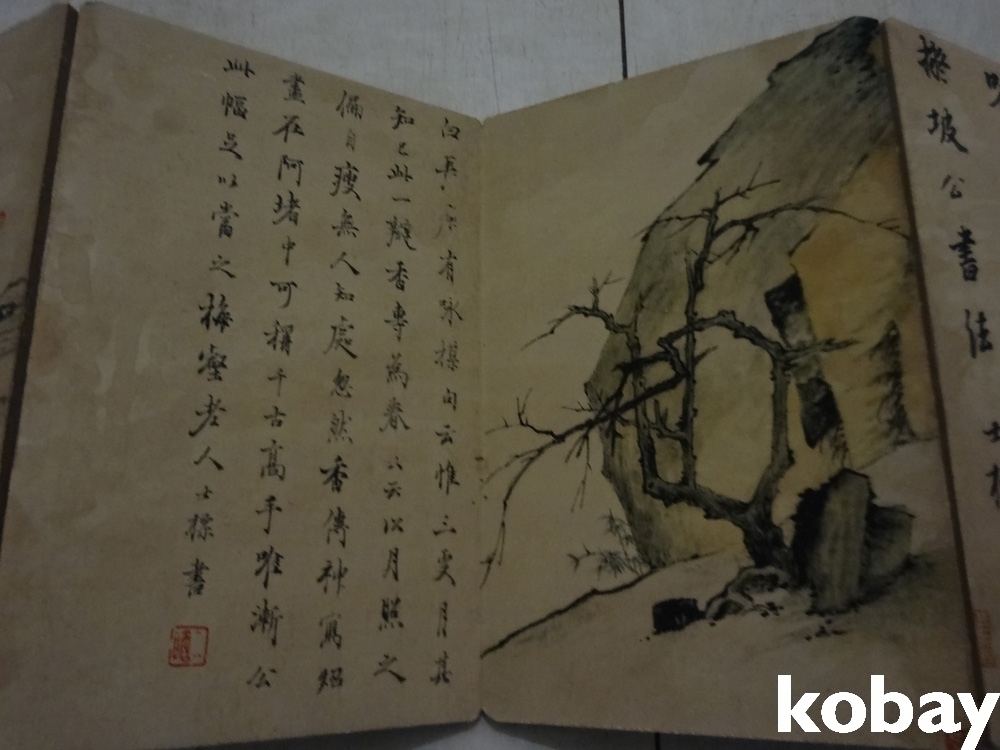 坡公書法
有詠楳句云惟三更月其
知己此一瓣香專為春又云以月照之
偏自瘦無人知處忽然香傳神寫炤
畫在阿堵中可稱千古高手唯漸公
此幅足以當之梅壑老人士標書
kobay